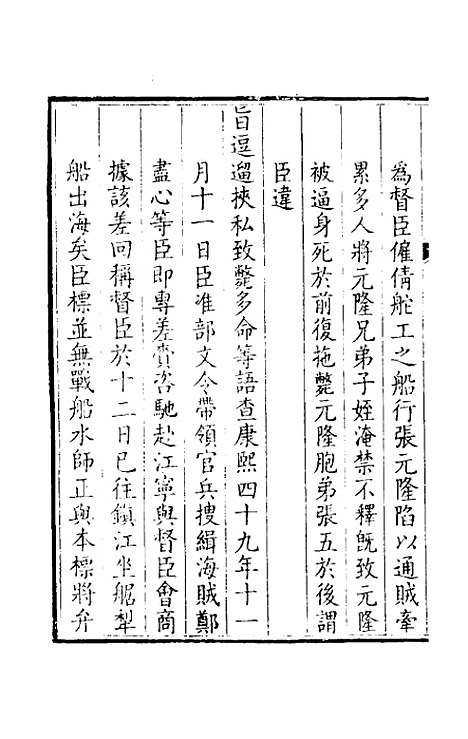 為督臣僱倩舵工之船行張元隆陷以通賊牽
累多人將元隆兄弟子姪淹禁不釋旣致元隆
被逼身死於前復拖斃元隆胞弟張五於後謂
臣違
旨逗遛挾私致斃多命等語查康熙四十九年十一
月十一日臣准部文令帶領官兵搜緝海賊鄭
盡心等臣即專差賫咨馳赴江寧與督臣會商
據該差回稱督臣於十二日已往鎮江坐艍犁
船出海矣臣標並無戰船水師正與本標將弁